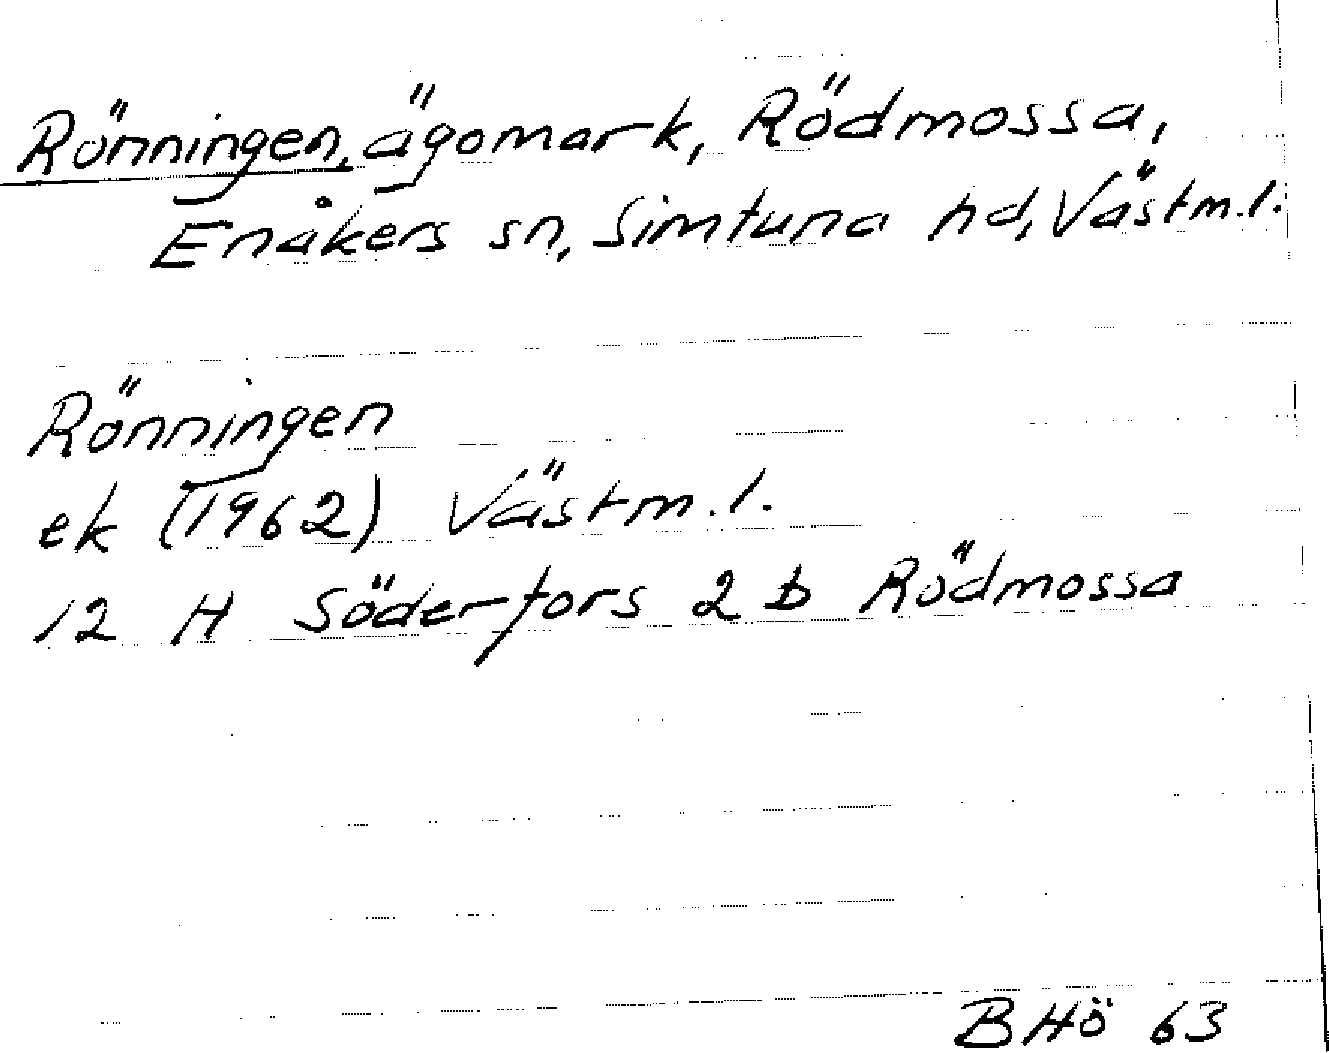 Rönningen, ägomark, Rödmossa,
Enåkers sn, Simtuna hd, Västm.l.
Rönningen
ek (1962) Västm.l.
12 H Söderfors 2 b Rödmossa
BHö 63